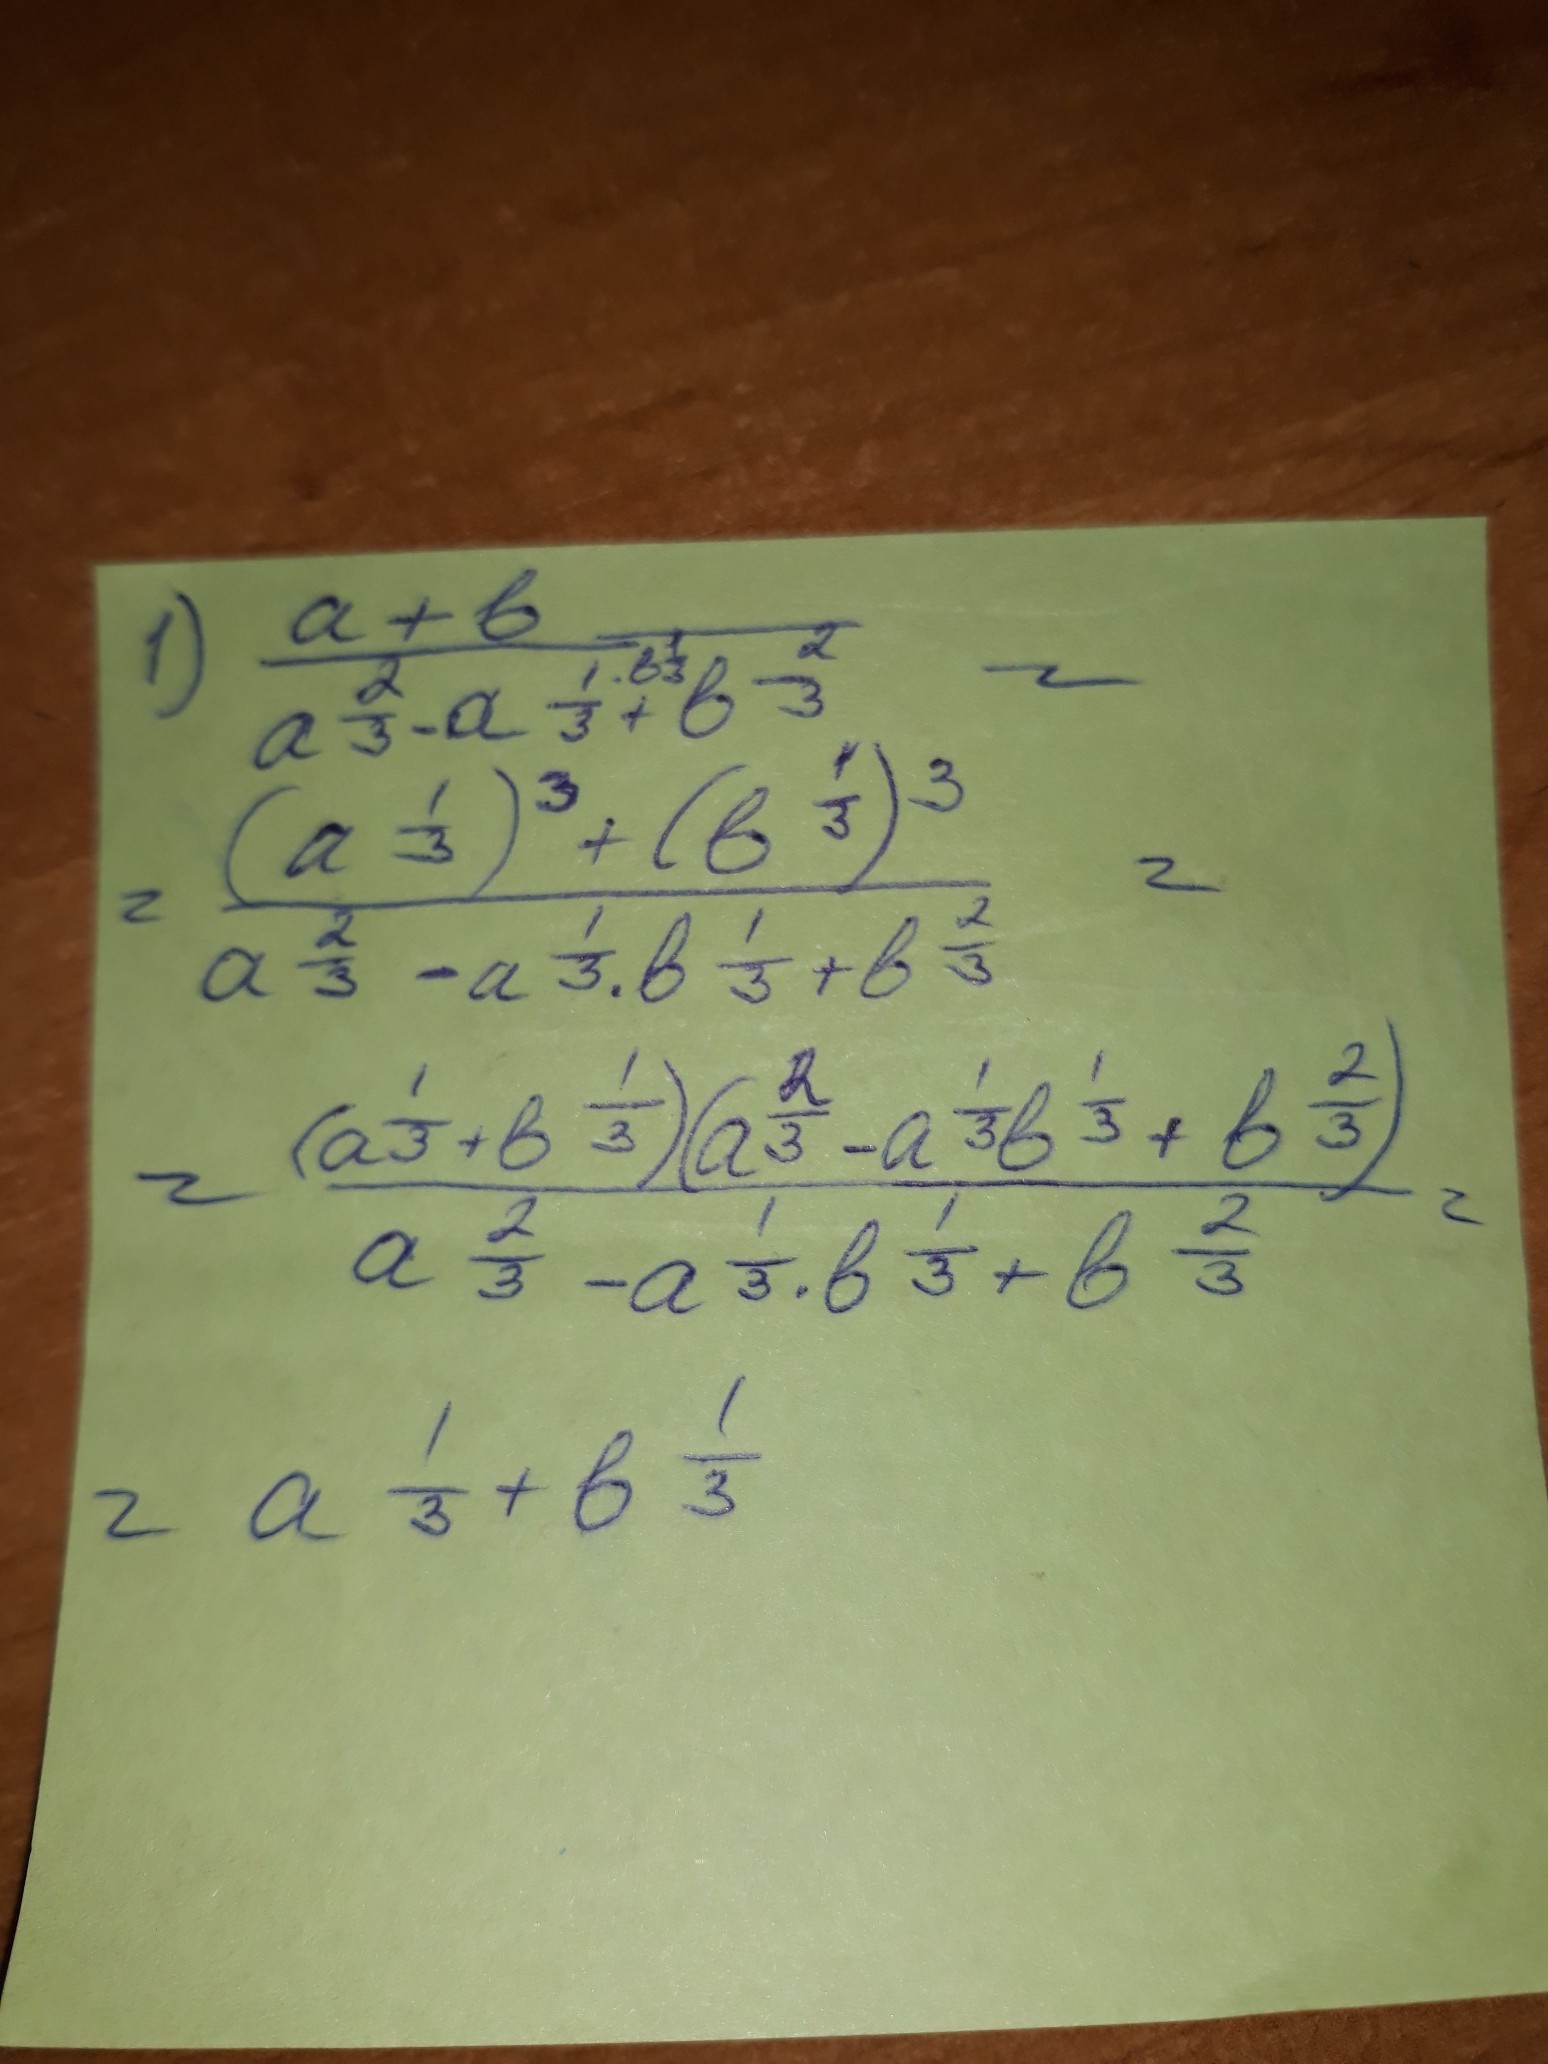 1) (a + b) / (a^(2/3) - a^(1/3) · b^(1/3) + b^(2/3)) =
= ((a^(1/3))^3 + (b^(1/3))^3) / (a^(2/3) - a^(1/3) · b^(1/3) + b^(2/3)) =
= ((a^(1/3) + b^(1/3))(a^(2/3) - a^(1/3) b^(1/3) + b^(2/3))) / (a^(2/3) - a^(1/3) · b^(1/3) + b^(2/3)) =
= a^(1/3) + b^(1/3)